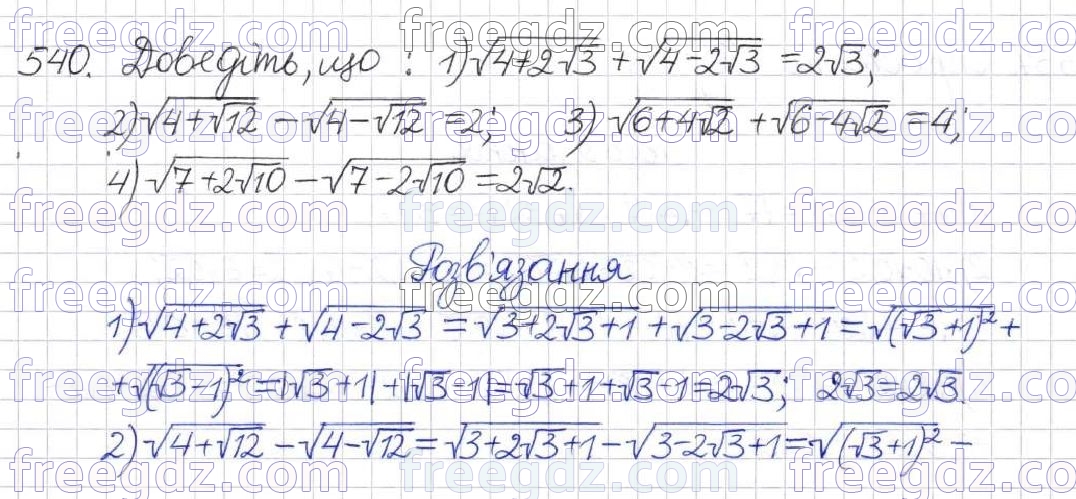 540. Доведіть, що : 1) √(4+2√3) + √(4-2√3) = 2√3;
2) √(4+√12) - √(4-√12) = 2; 3) √(6+4√2) + √(6-4√2) = 4;
4) √(7+2√10) - √(7-2√10) = 2√2.
Розв'язання
1) √(4+2√3) + √(4-2√3) = √(3+2√3+1) + √(3-2√3+1) = √((√3+1)²) +
+ √((√3-1)²) = |√3+1| + |√3-1| = √3+1+√3-1 = 2√3; 2√3 = 2√3.
2) √(4+√12) - √(4-√12) = √(3+2√3+1) - √(3-2√3+1) = √((√3+1)²) -
freegdz.com